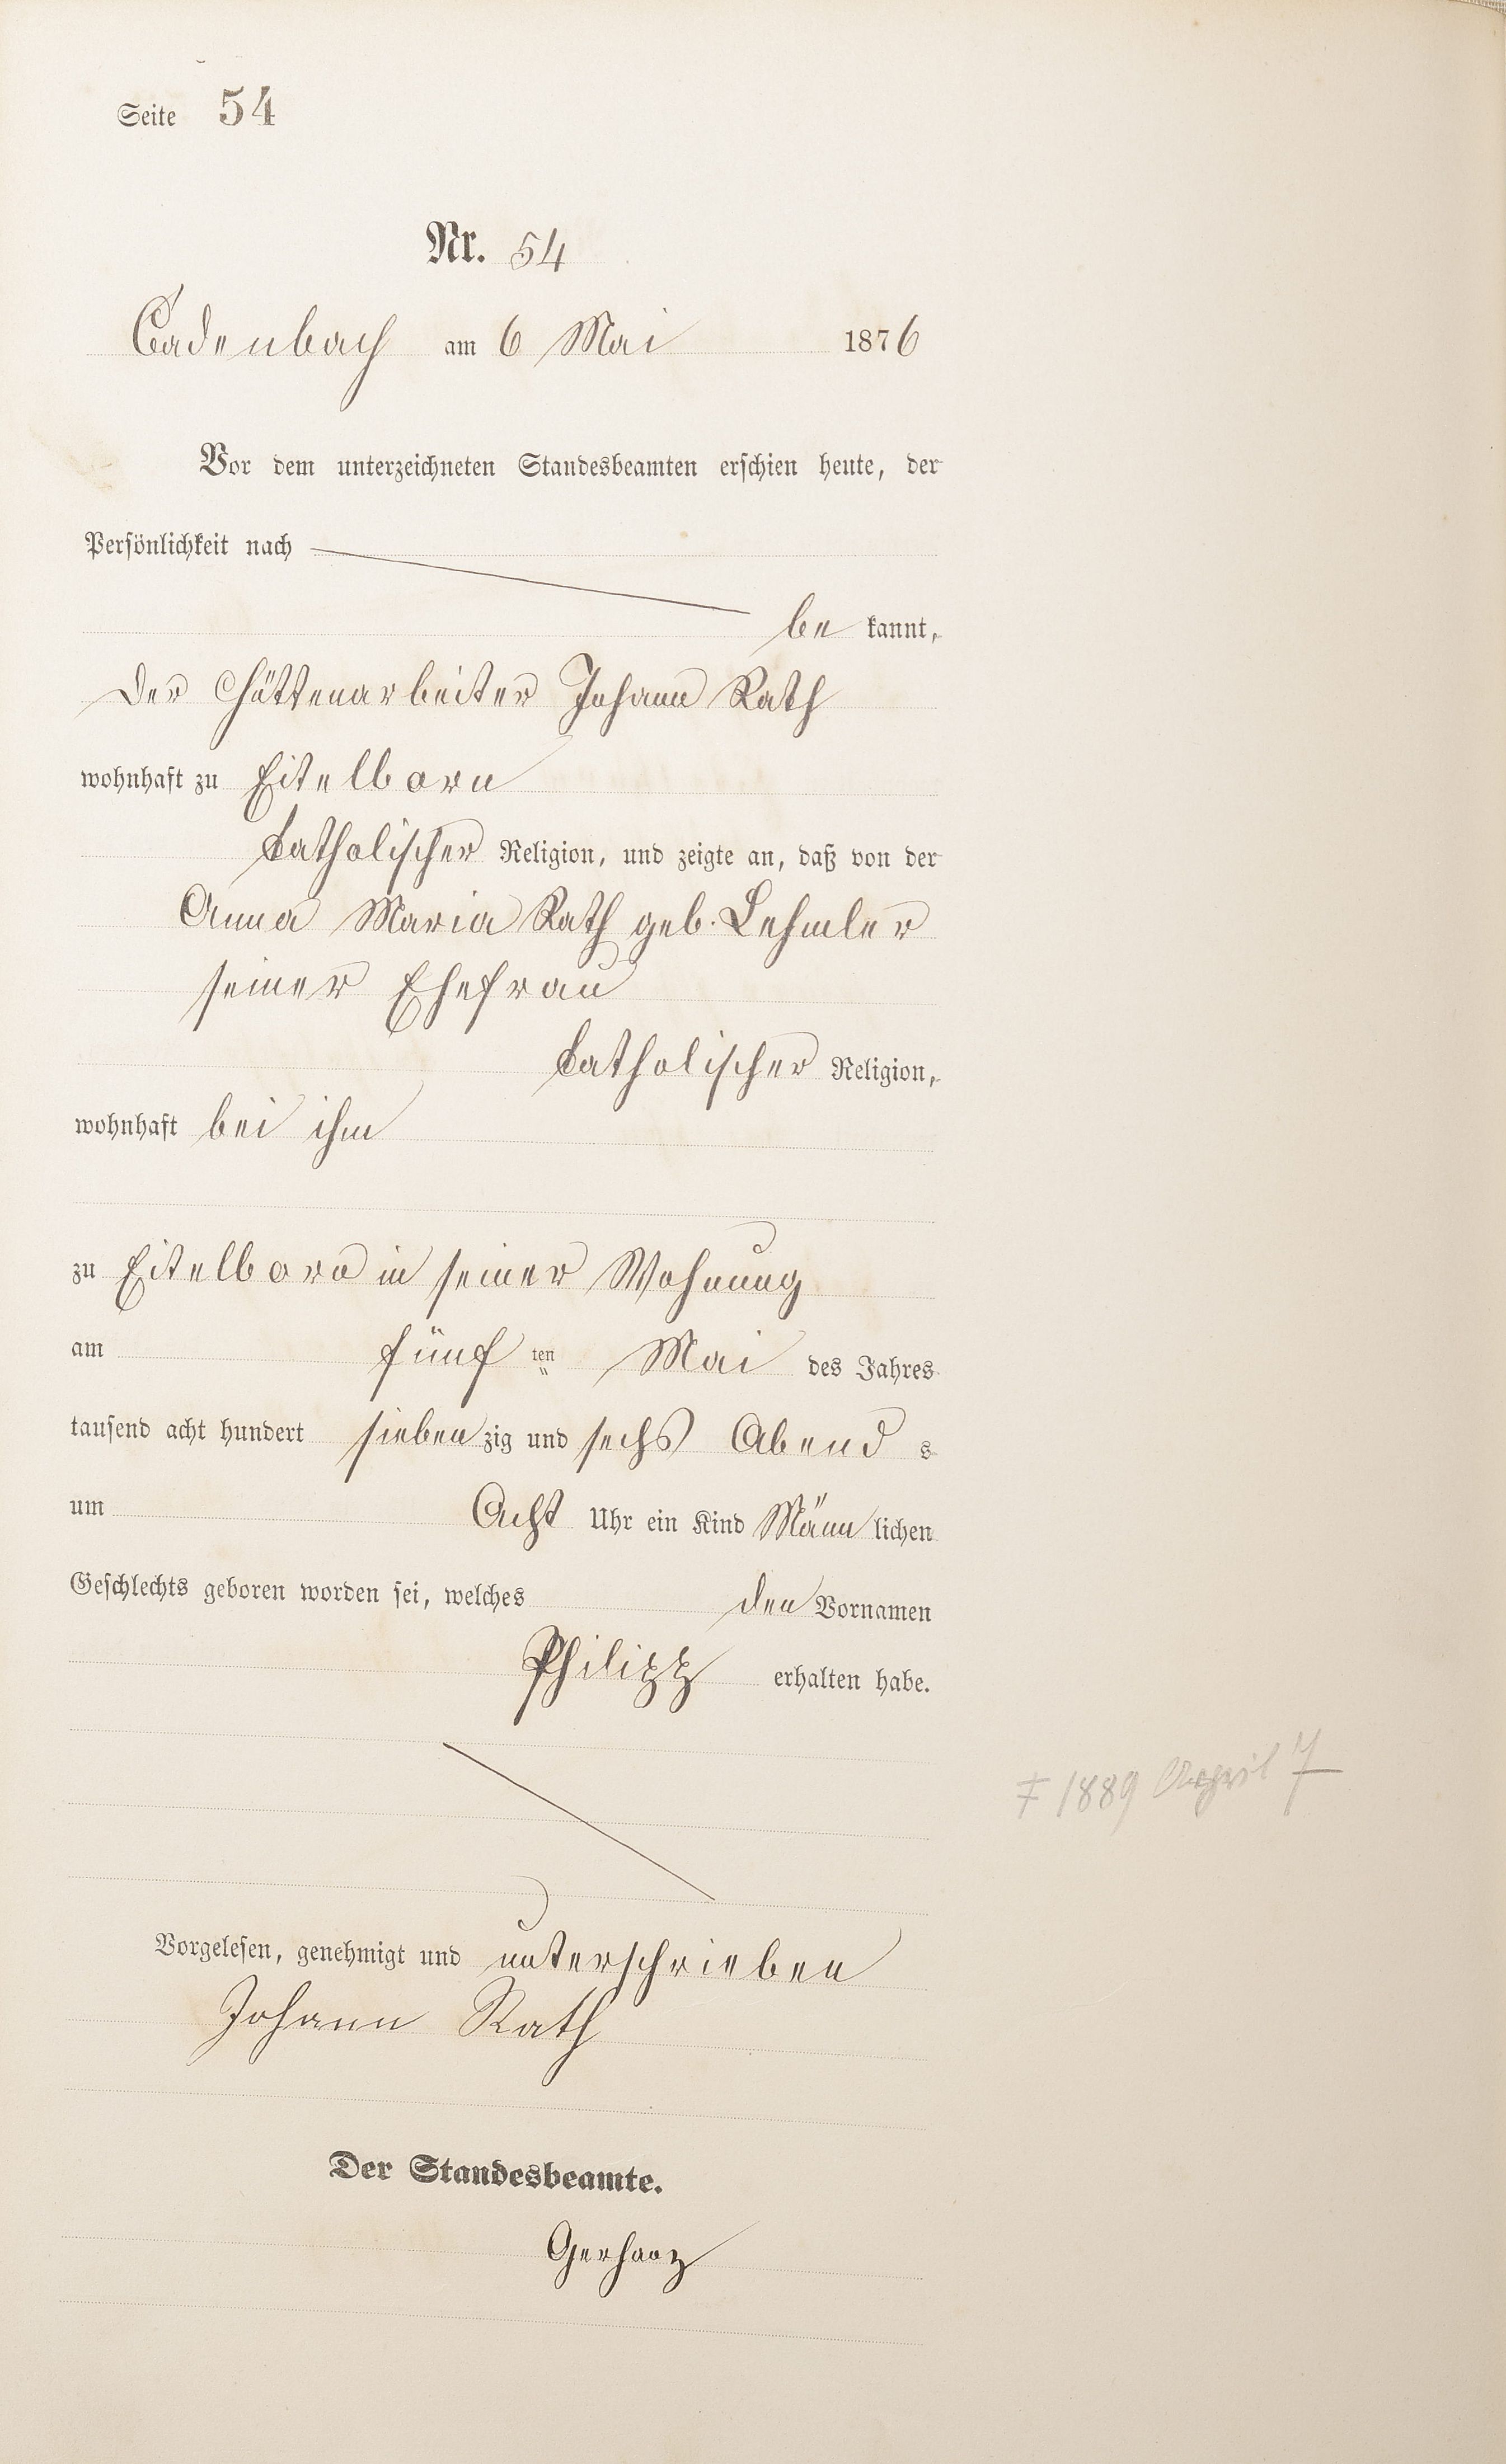 Seite 54
Nr. 54
Cadenbach am 6 Mai 1876
Vor dem unterzeichneten Standesbeamten erschien heute, der
Persönlichkeit nach
be kannt,
der Hüttenarbeiter Johann Rath
wohnhaft zu Eitelborn
katholischer Religion, und zeigte an, daß von der
Anna Maria Rath geb. Lehmler
seiner Ehefrau
katholischer Religion,
wohnhaft bei ihm
zu Eitelborn in seiner Wohnung
am fünf ten Mai des Jahres
tausend acht hundert sieben zig und sechs Abend s
um Acht Uhr ein Kind Männ lichen
Geschlechts geboren worden sei, welches den Vornamen
Philipp erhalten habe.
† 1889 April 7
Vorgelesen, genehmigt und unterschrieben
Johann Rath
Der Standesbeamte.
Gerharz